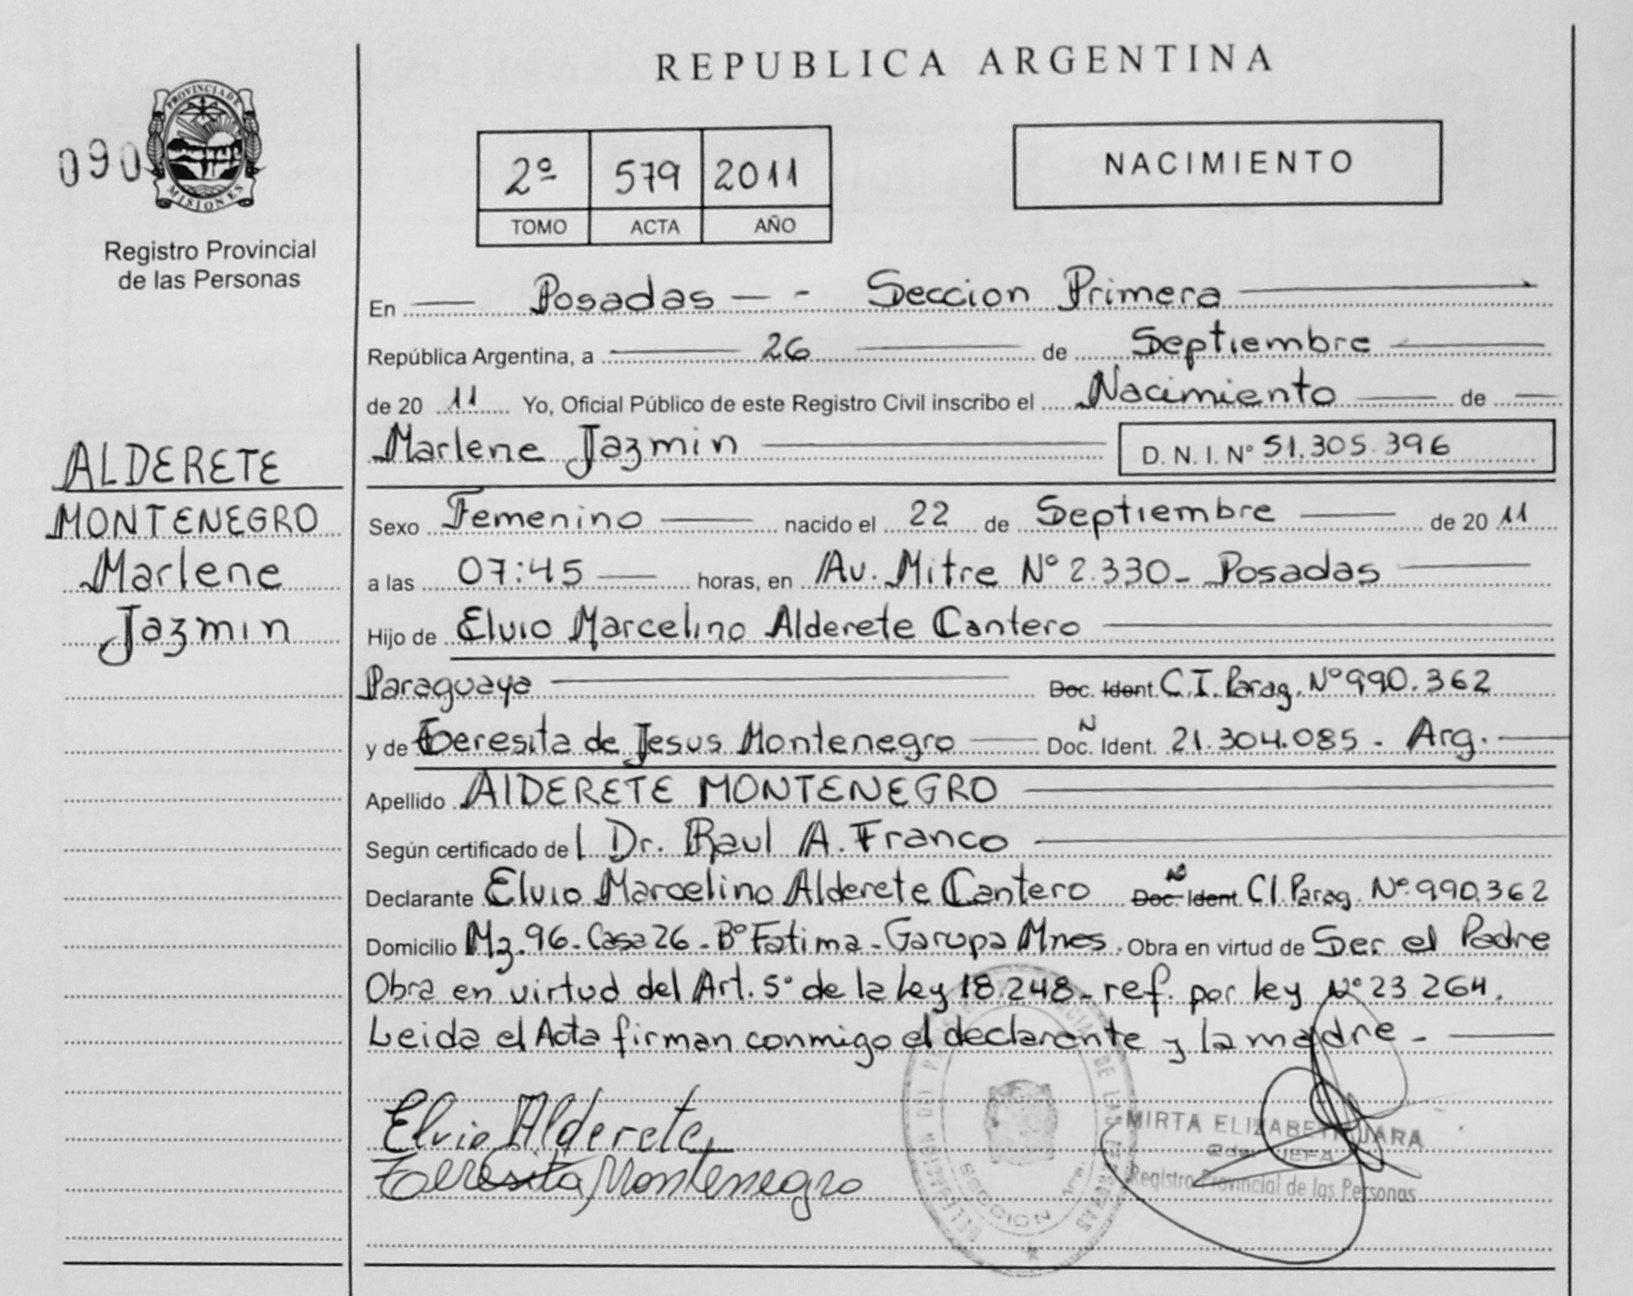 REPUBLICA ARGENTINA
090
PROVINCIA DE MISIONES
Registro Provincial
de las Personas
2º 579 2011
TOMO ACTA AÑO
NACIMIENTO
En Posadas - - Seccion Primera
República Argentina, a 26 de Septiembre
de 20 11 Yo, Oficial Público de este Registro Civil inscribo el Nacimiento de
Marlene Jazmin D. N. I. Nº 51.305.396
ALDERETE
MONTENEGRO
Marlene
Jazmin
Sexo Femenino nacido el 22 de Septiembre de 20 11
a las 07:45 horas, en Av. Mitre Nº 2.330- Posadas
Hijo de Elvio Marcelino Alderete Cantero
Paraguaya Doc. Ident. C.I. Parag. Nº 990.362
y de Teresita de Jesus Montenegro Doc. N Ident. 21.304.085 - Arg.
Apellido AlDERETE MONTENEGRO
Según certificado de l Dr. Raul A. Franco
Declarante Elvio Marcelino Alderete Cantero Doc. Nº Ident. CI. Parag. Nº 990.362
Domicilio Mz. 96- Casa 26 - Bº Fatima - Garupa Mnes. Obra en virtud de Ser el Padre
Obra en virtud del Art. 5º de la ley 18.248- ref. por ley Nº 23 264.
Leida el Acta firman conmigo el declarante y la madre -
Elvio Alderete
Teresita Montenegro
SECCION 1ra
MIRTA ELIZABETH JARA
JEFA
Registro Provincial de las Personas